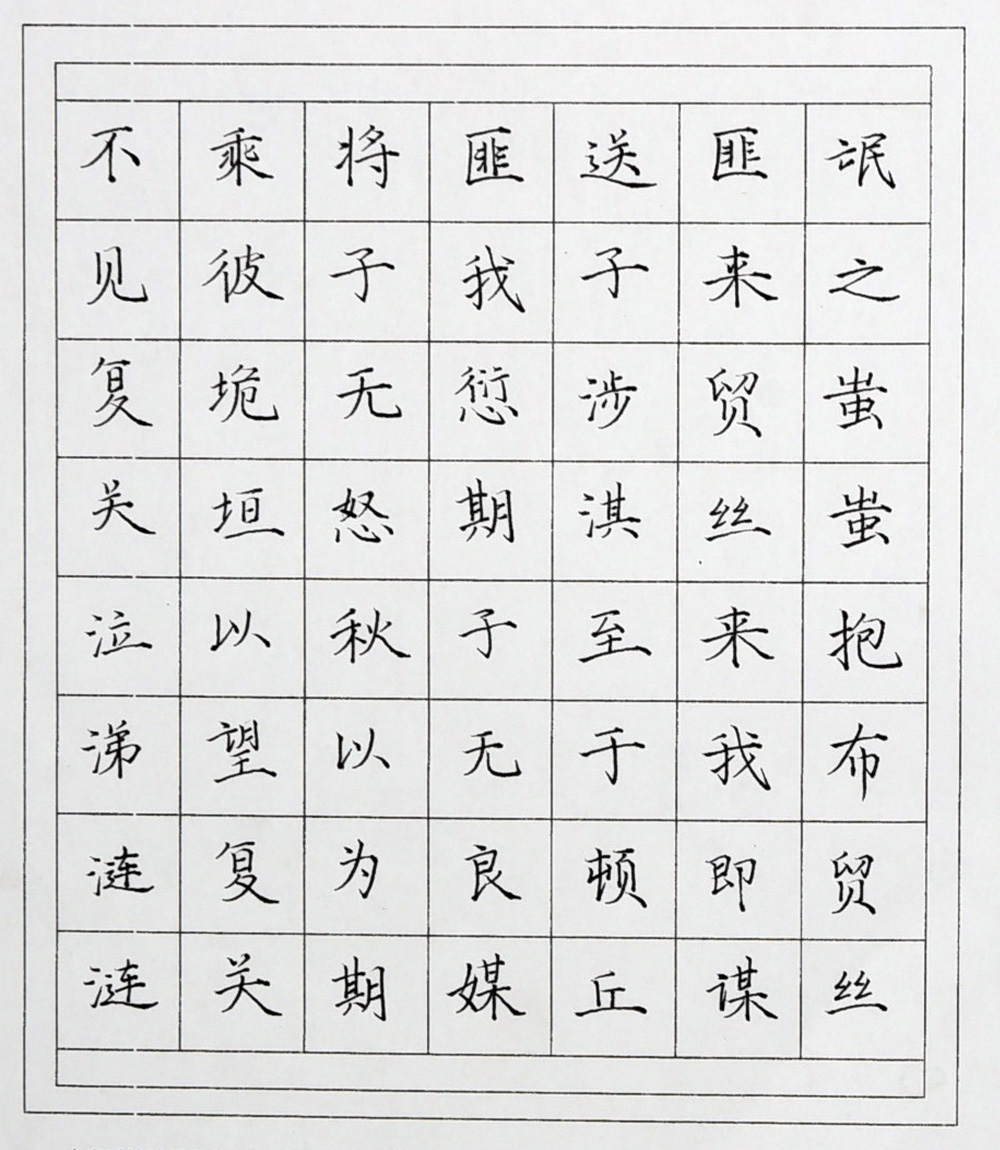 氓之蚩蚩抱布贸丝
匪来贸丝来我即谋
送子涉淇至于顿丘
匪我愆期子无良媒
将子无怒秋以为期
乘彼垝垣以望复关
不见复关泣涕涟涟